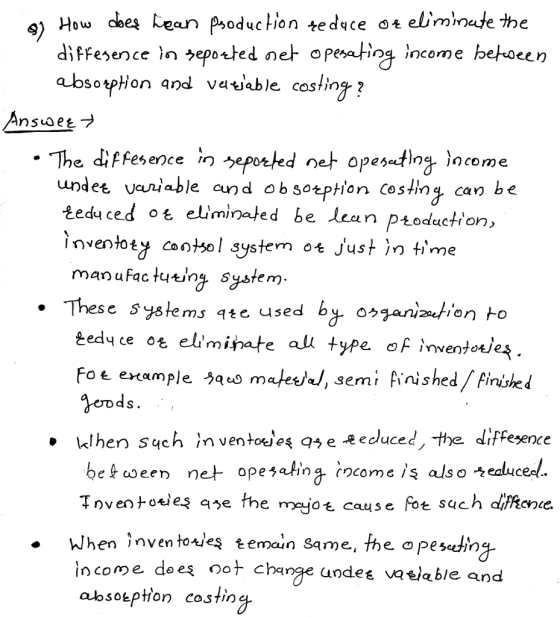 Q) How does Lean production reduce or eliminate the
difference in reported net operating income between
absorption and variable costing?
Answer →
• The difference in reported net operating income
under variable and obsorption costing can be
reduced or eliminated be lean production,
inventory control system or just in time
manufacturing system.
• These systems are used by organization to
reduce or eliminate all type of inventories.
For example raw material, semi finished / finished
goods.
• When such inventories are reduced, the difference
between net operating income is also reduced.
Inventories are the major cause for such diffrence.
• When inventories remain same, the operating
income does not change under variable and
absorption costing